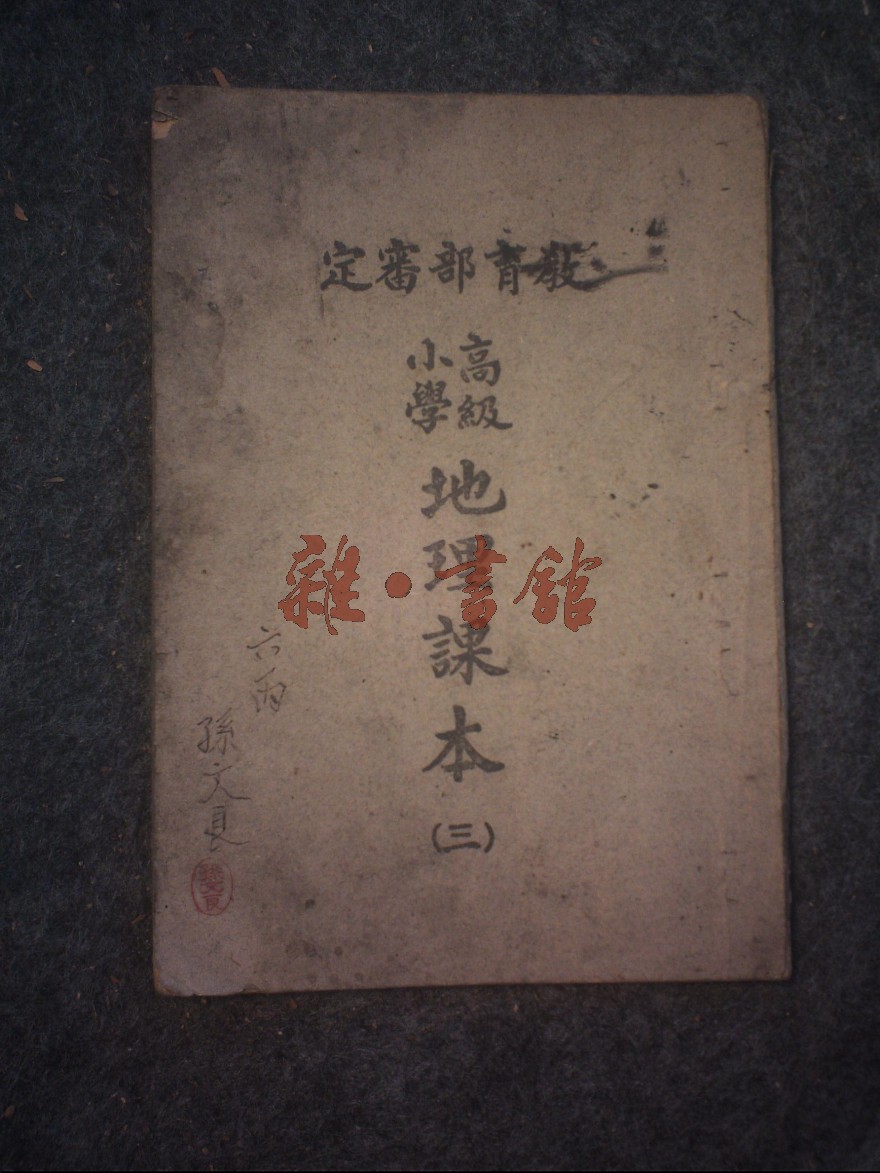 敎育部審定
高級
小學
地理課本
(三)
雜·書館
六丙
孫文良